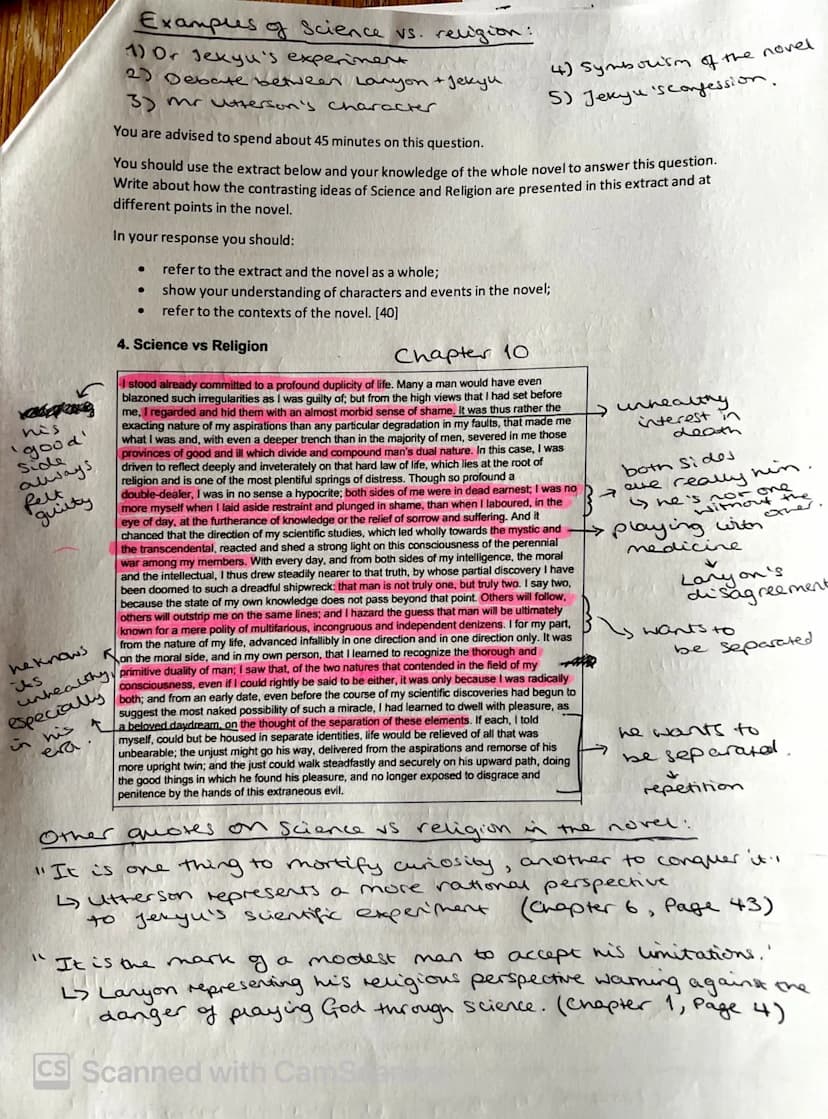 Examples of Science vs. religion:
1) Dr Jekyll's experiment
2) Debate between Lanyon + Jekyll
3) Mr Utterson's character
4) Symbolism of the novel
5) Jekyll's confession.
You are advised to spend about 45 minutes on this question.
You should use the extract below and your knowledge of the whole novel to answer this question.
Write about how the contrasting ideas of Science and Religion are presented in this extract and at
different points in the novel.
In your response you should:
• refer to the extract and the novel as a whole;
• show your understanding of characters and events in the novel;
• refer to the contexts of the novel. [40]
4. Science vs Religion
Chapter 10
I stood already committed to a profound duplicity of life. Many a man would have even
blazoned such irregularities as I was guilty of; but from the high views that I had set before
me, I regarded and hid them with an almost morbid sense of shame. It was thus rather the
exacting nature of my aspirations than any particular degradation in my faults, that made me
what I was and, with even a deeper trench than in the majority of men, severed in me those
provinces of good and ill which divide and compound man's dual nature. In this case, I was
driven to reflect deeply and inveterately on that hard law of life, which lies at the root of
religion and is one of the most plentiful springs of distress. Though so profound a
double-dealer, I was in no sense a hypocrite; both sides of me were in dead earnest; I was no
more myself when I laid aside restraint and plunged in shame, than when I laboured, in the
eye of day, at the furtherance of knowledge or the relief of sorrow and suffering. And it
chanced that the direction of my scientific studies, which led wholly towards the mystic and
the transcendental, reacted and shed a strong light on this consciousness of the perennial
war among my members. With every day, and from both sides of my intelligence, the moral
and the intellectual, I thus drew steadily nearer to that truth, by whose partial discovery I have
been doomed to such a dreadful shipwreck: that man is not truly one, but truly two. I say two,
because the state of my own knowledge does not pass beyond that point. Others will follow,
others will outstrip me on the same lines; and I hazard the guess that man will be ultimately
known for a mere polity of multifarious, incongruous and independent denizens. I for my part,
from the nature of my life, advanced infallibly in one direction and in one direction only. It was
on the moral side, and in my own person, that I learned to recognize the thorough and
primitive duality of man; I saw that, of the two natures that contended in the field of my
consciousness, even if I could rightly be said to be either, it was only because I was radically
both; and from an early date, even before the course of my scientific discoveries had begun to
suggest the most naked possibility of such a miracle, I had learned to dwell with pleasure, as
a beloved daydream, on the thought of the separation of these elements. If each, I told
myself, could but be housed in separate identities, life would be relieved of all that was
unbearable; the unjust might go his way, delivered from the aspirations and remorse of his
more upright twin; and the just could walk steadfastly and securely on his upward path, doing
the good things in which he found his pleasure, and no longer exposed to disgrace and
penitence by the hands of this extraneous evil.
his
'good'
side
always
felt
guilty
he knows
its
unhealthy,
especially
in his
era.
unhealthy
interest in
death
both sides
are really him.
↳ he's not one
without the
other.
playing with
medicine
↓
Lanyon's
disagreement
wants to
be separated
he wants to
be separated.
↓
repetition
Other quotes on Science vs religion in the novel:
"It is one thing to mortify curiosity, another to conquer it."
↳ Utterson represents a more rational perspective
to Jekyll's scientific experiment (Chapter 6, Page 43)
"It is the mark of a modest man to accept his limitations.'
↳ Lanyon representing his religious perspective warning against the
danger of playing God through science. (Chapter 1, Page 4)
CS Scanned with CamScanner